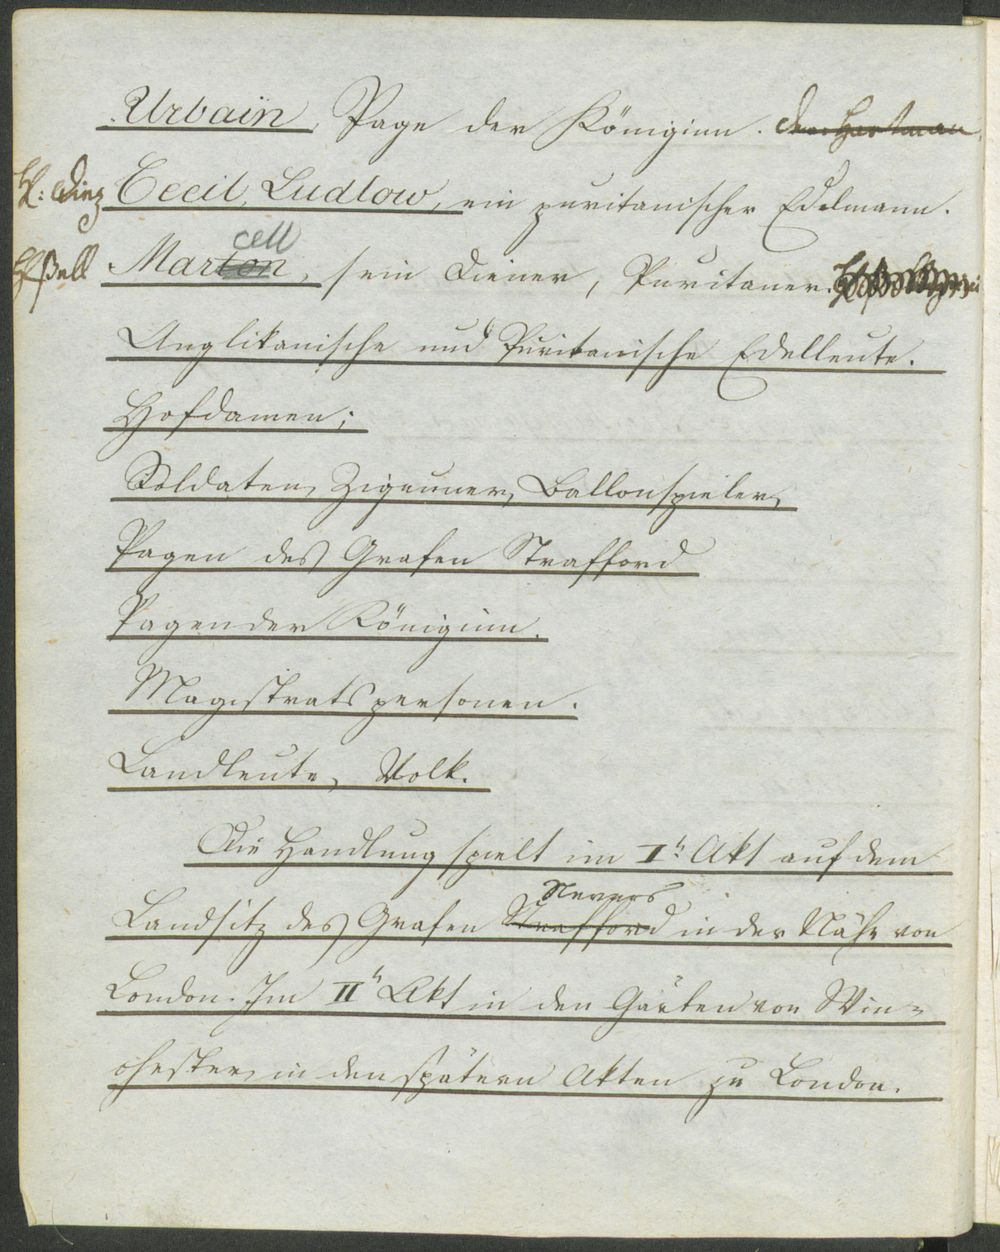 Urbain, Page der Königinn. Dem. Hartman
H: Dinz Cecil, Ludlow, ein puritanischer Edelmann.
cell
Marton, sein Diener, Puritaner.
Anglikanische und Puritanische Edelleute.
Hofdamen;
Soldaten, Zigeuner, Ballonspieler,
Pagen des Grafen Strafford
Pagen der Königinn.
Magistratspersonen.
Landleute, Volk.
Die Handlung spielt im I.t Akt auf dem
Nevers
Landsitz des Grafen Strafford in der Nähe von
London. Im II.t Akt in den Gärten von Win=
chester, in den spätern Akten zu London.